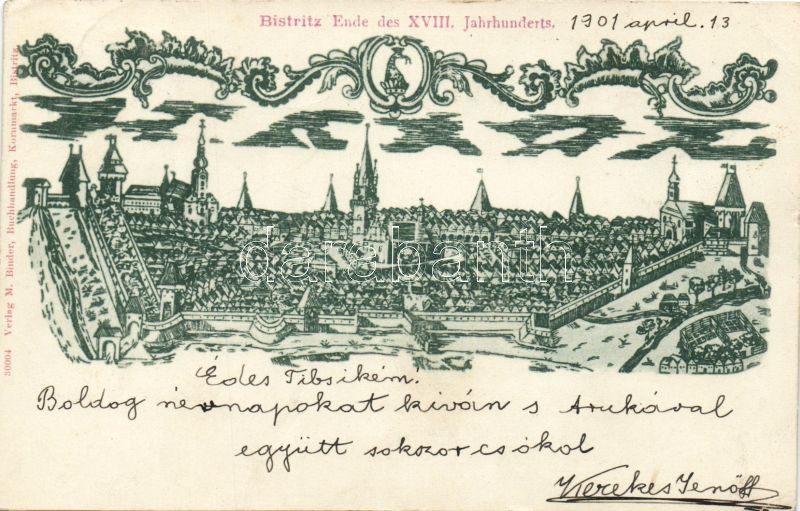 Bistritz Ende des XVIII. Jahrhunderts.
1901 april. 13
30004 Verlag M. Binder, Buchhandlung, Kornmarkt, Bistritz.
darabanth
Édes Tibsikém!
Boldog névnapokat kíván s Arukával
együtt sokszor csókol
Kerekes Jenő